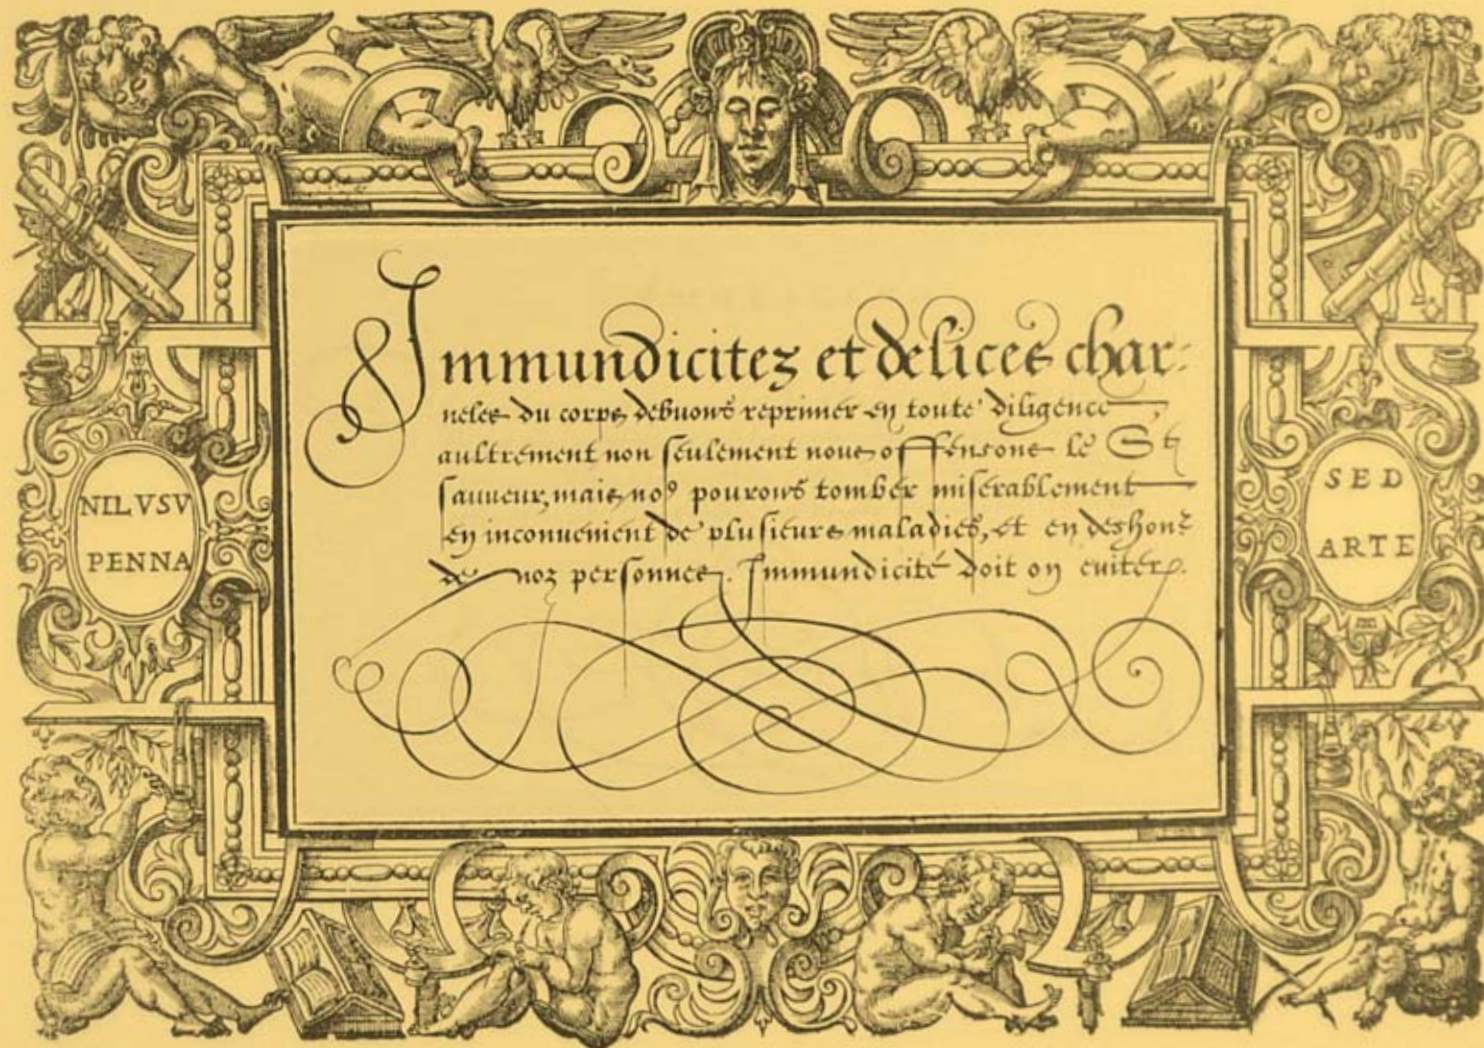 Immundicitez et delices char-
neles du corps debuons reprimer en toute diligence,
aultrement non seulement nous offensons le St
sauueur, mais noꝰ pourons tomber miserablement
en inconuenient de plusieurs maladies, et en deshonᷣ
de noz personnes. Immundicité doit on euiter.
NIL VSV
PENNA
SED
ARTE